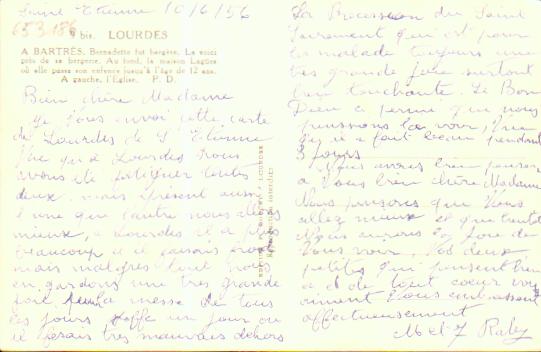 Saint Etienne 10/6/56
653186
9 bis. LOURDES
A BARTRÈS, Bernadette fut bergère. La voici
près de sa bergerie. Au fond, la maison Laguës
où elle passa son enfance jusqu'à l'âge de 12 ans.
A gauche, l'Église. P. D.
Bien chère Madame
Je vous envoi cette carte
de Lourdes de St Etienne
car à Lourdes nous
avons été fatiguer toutes
deux, mais présent aussi
l'une que l'autre nous allons
mieux, Lourdes il a plus
beaucoup et il faisais froid
mais malgrés tout nous
en gardons une très grande
joie la messe de tous
les jours un jour ou
il fesais très mauvais dehors
La Procession du Saint
Sacrement qui est pour
les malade toujours une
très grande joie surtout
bien touchante. Le Bon
Dieu a permi que nous
puissions la voir, vue
qu'il a fait beau pendant
3 jours
Nous avons bien penser
a Vous bien chère Madame
Nous pensons que Vous
allez mieux et que bientôt
Nous aurons la joie de
Vous voir, Vos deux
petites qui pensent bien
a et de tout coeur vous
aiment Vous embrassent
affectueusement
M et J Raby